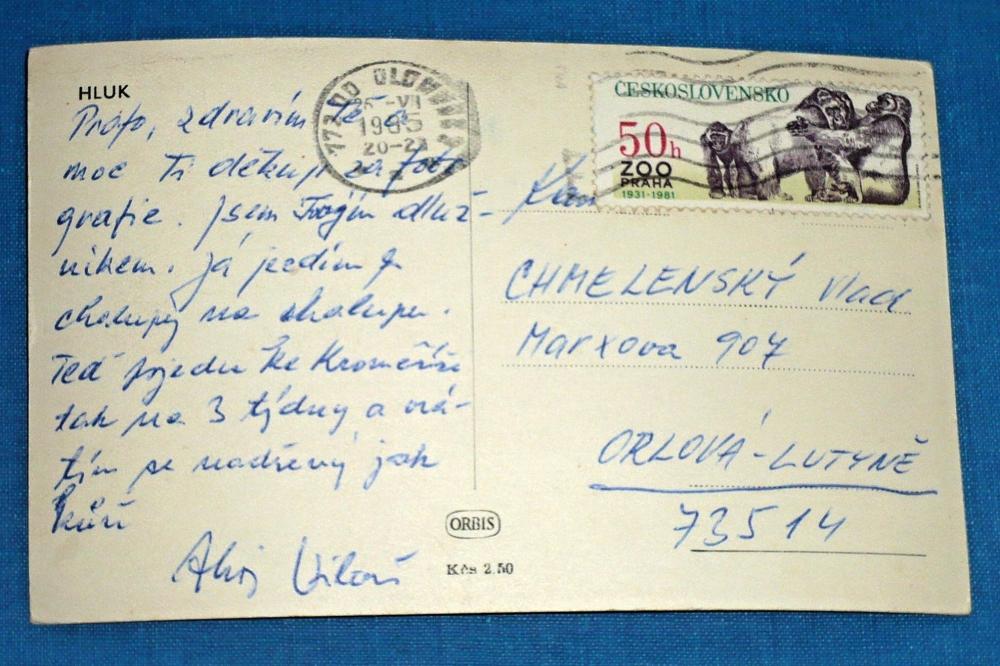 HLUK
zdravím Tě a
moc Ti děkuji za foto
grafie. Jsem Tvým dluž-
níkem. Já jezdím z
chalupy na chalupu.
Teď pojedu ke Kroměříži
tak na 3 týdny a vrá-
tím se nadšený jak
kůň
Ahoj Miloš
772 00 OLOMOUC
-VII
1985
ČESKOSLOVENSKO
50h
ZOO
PRAHA
1931-1981
CHMELENSKÝ Vlad
Marxova 907
ORLOVÁ-LUTYNĚ
73514
ORBIS
Kčs 2.50